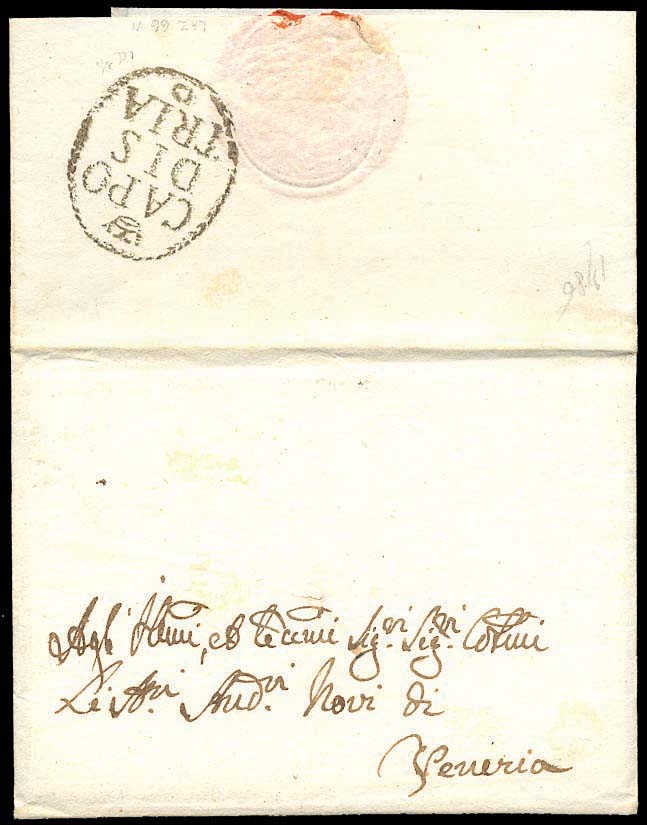 CAPO
DIS
TRIA
Agl' Illmi, et Eccmi Sig.ri Sig.ri Colmi
Li Sri. Aud.ri Novi di
Venezia